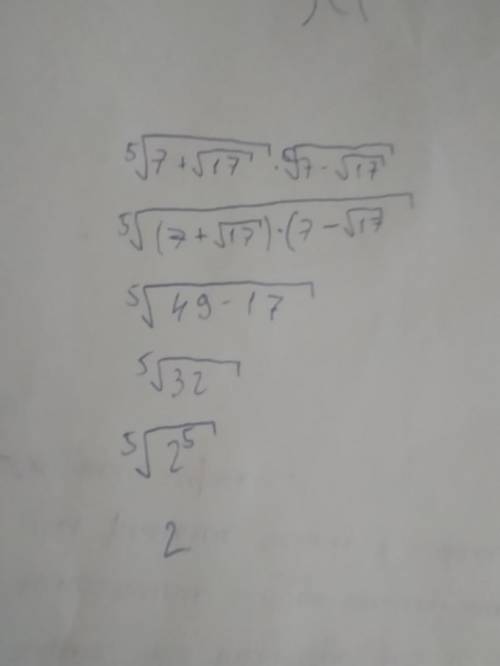 ⁵√(7 + √17) · ⁵√(7 - √17)
⁵√((7 + √17) · (7 - √17
⁵√(49 - 17)
⁵√32
⁵√2⁵
2